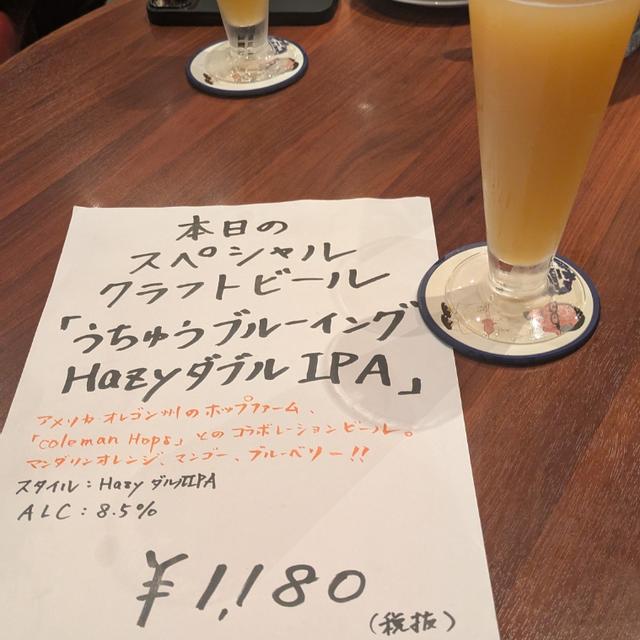 本日の
スペシャル
クラフトビール
「うちゅうブルーイング
Hazyダブル IPA」
アメリカ オレゴン州のホップファーム、
「Coleman Hops」とのコラボレーションビール。
マンダリンオレンジ、マンゴー、ブルーベリー!!
スタイル：Hazy ダブルIPA
ALC：8.5%
¥1,180
(税抜)